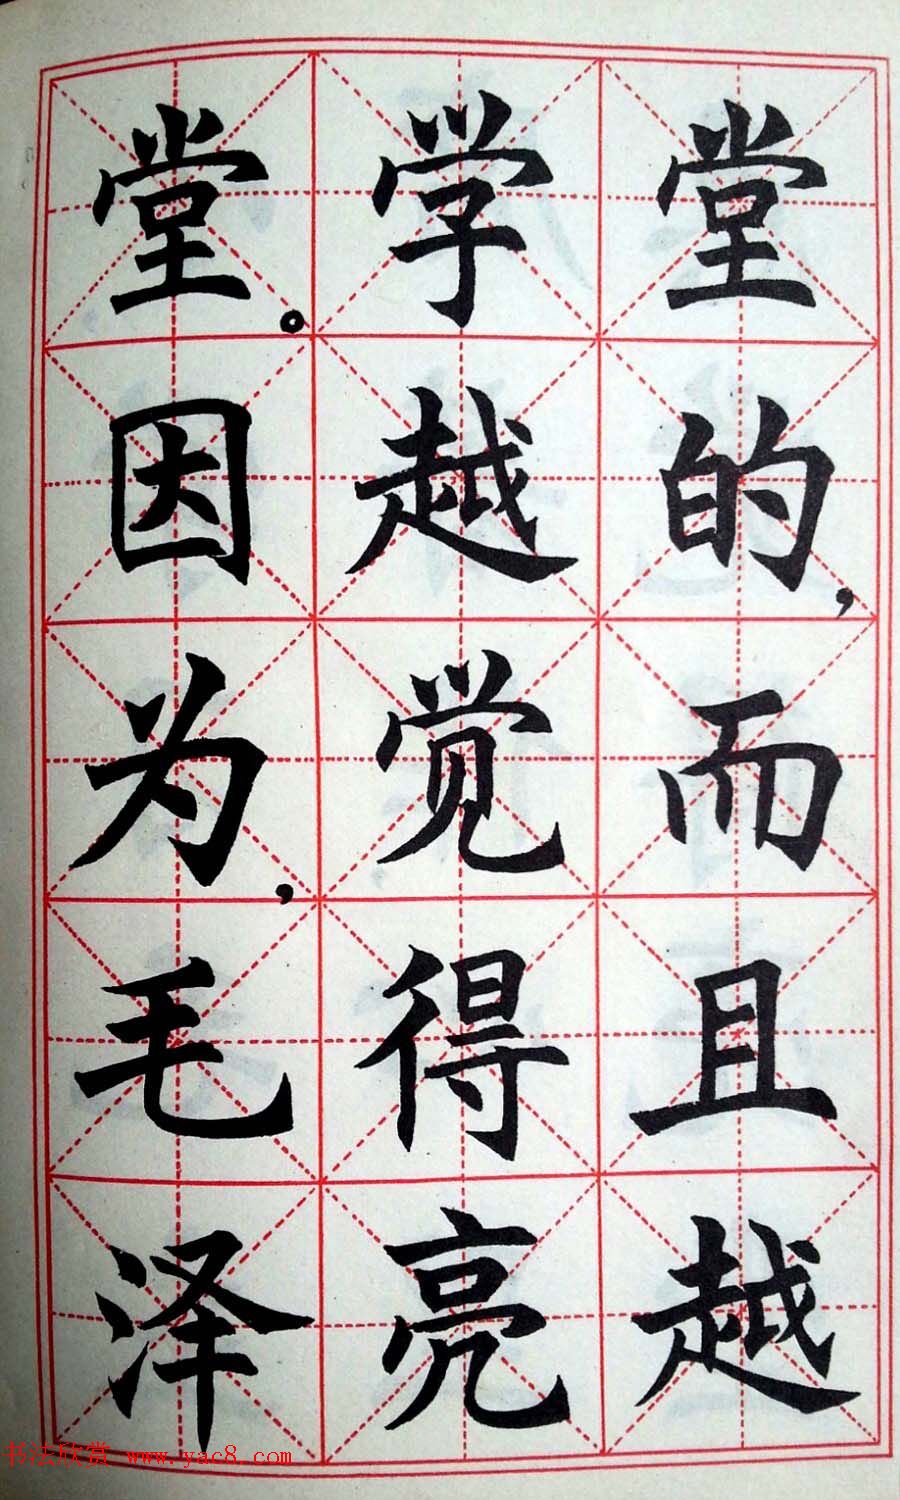 堂的，而且越
学越觉得亮
堂。因为，毛泽
书法欣赏 www.yac8.com